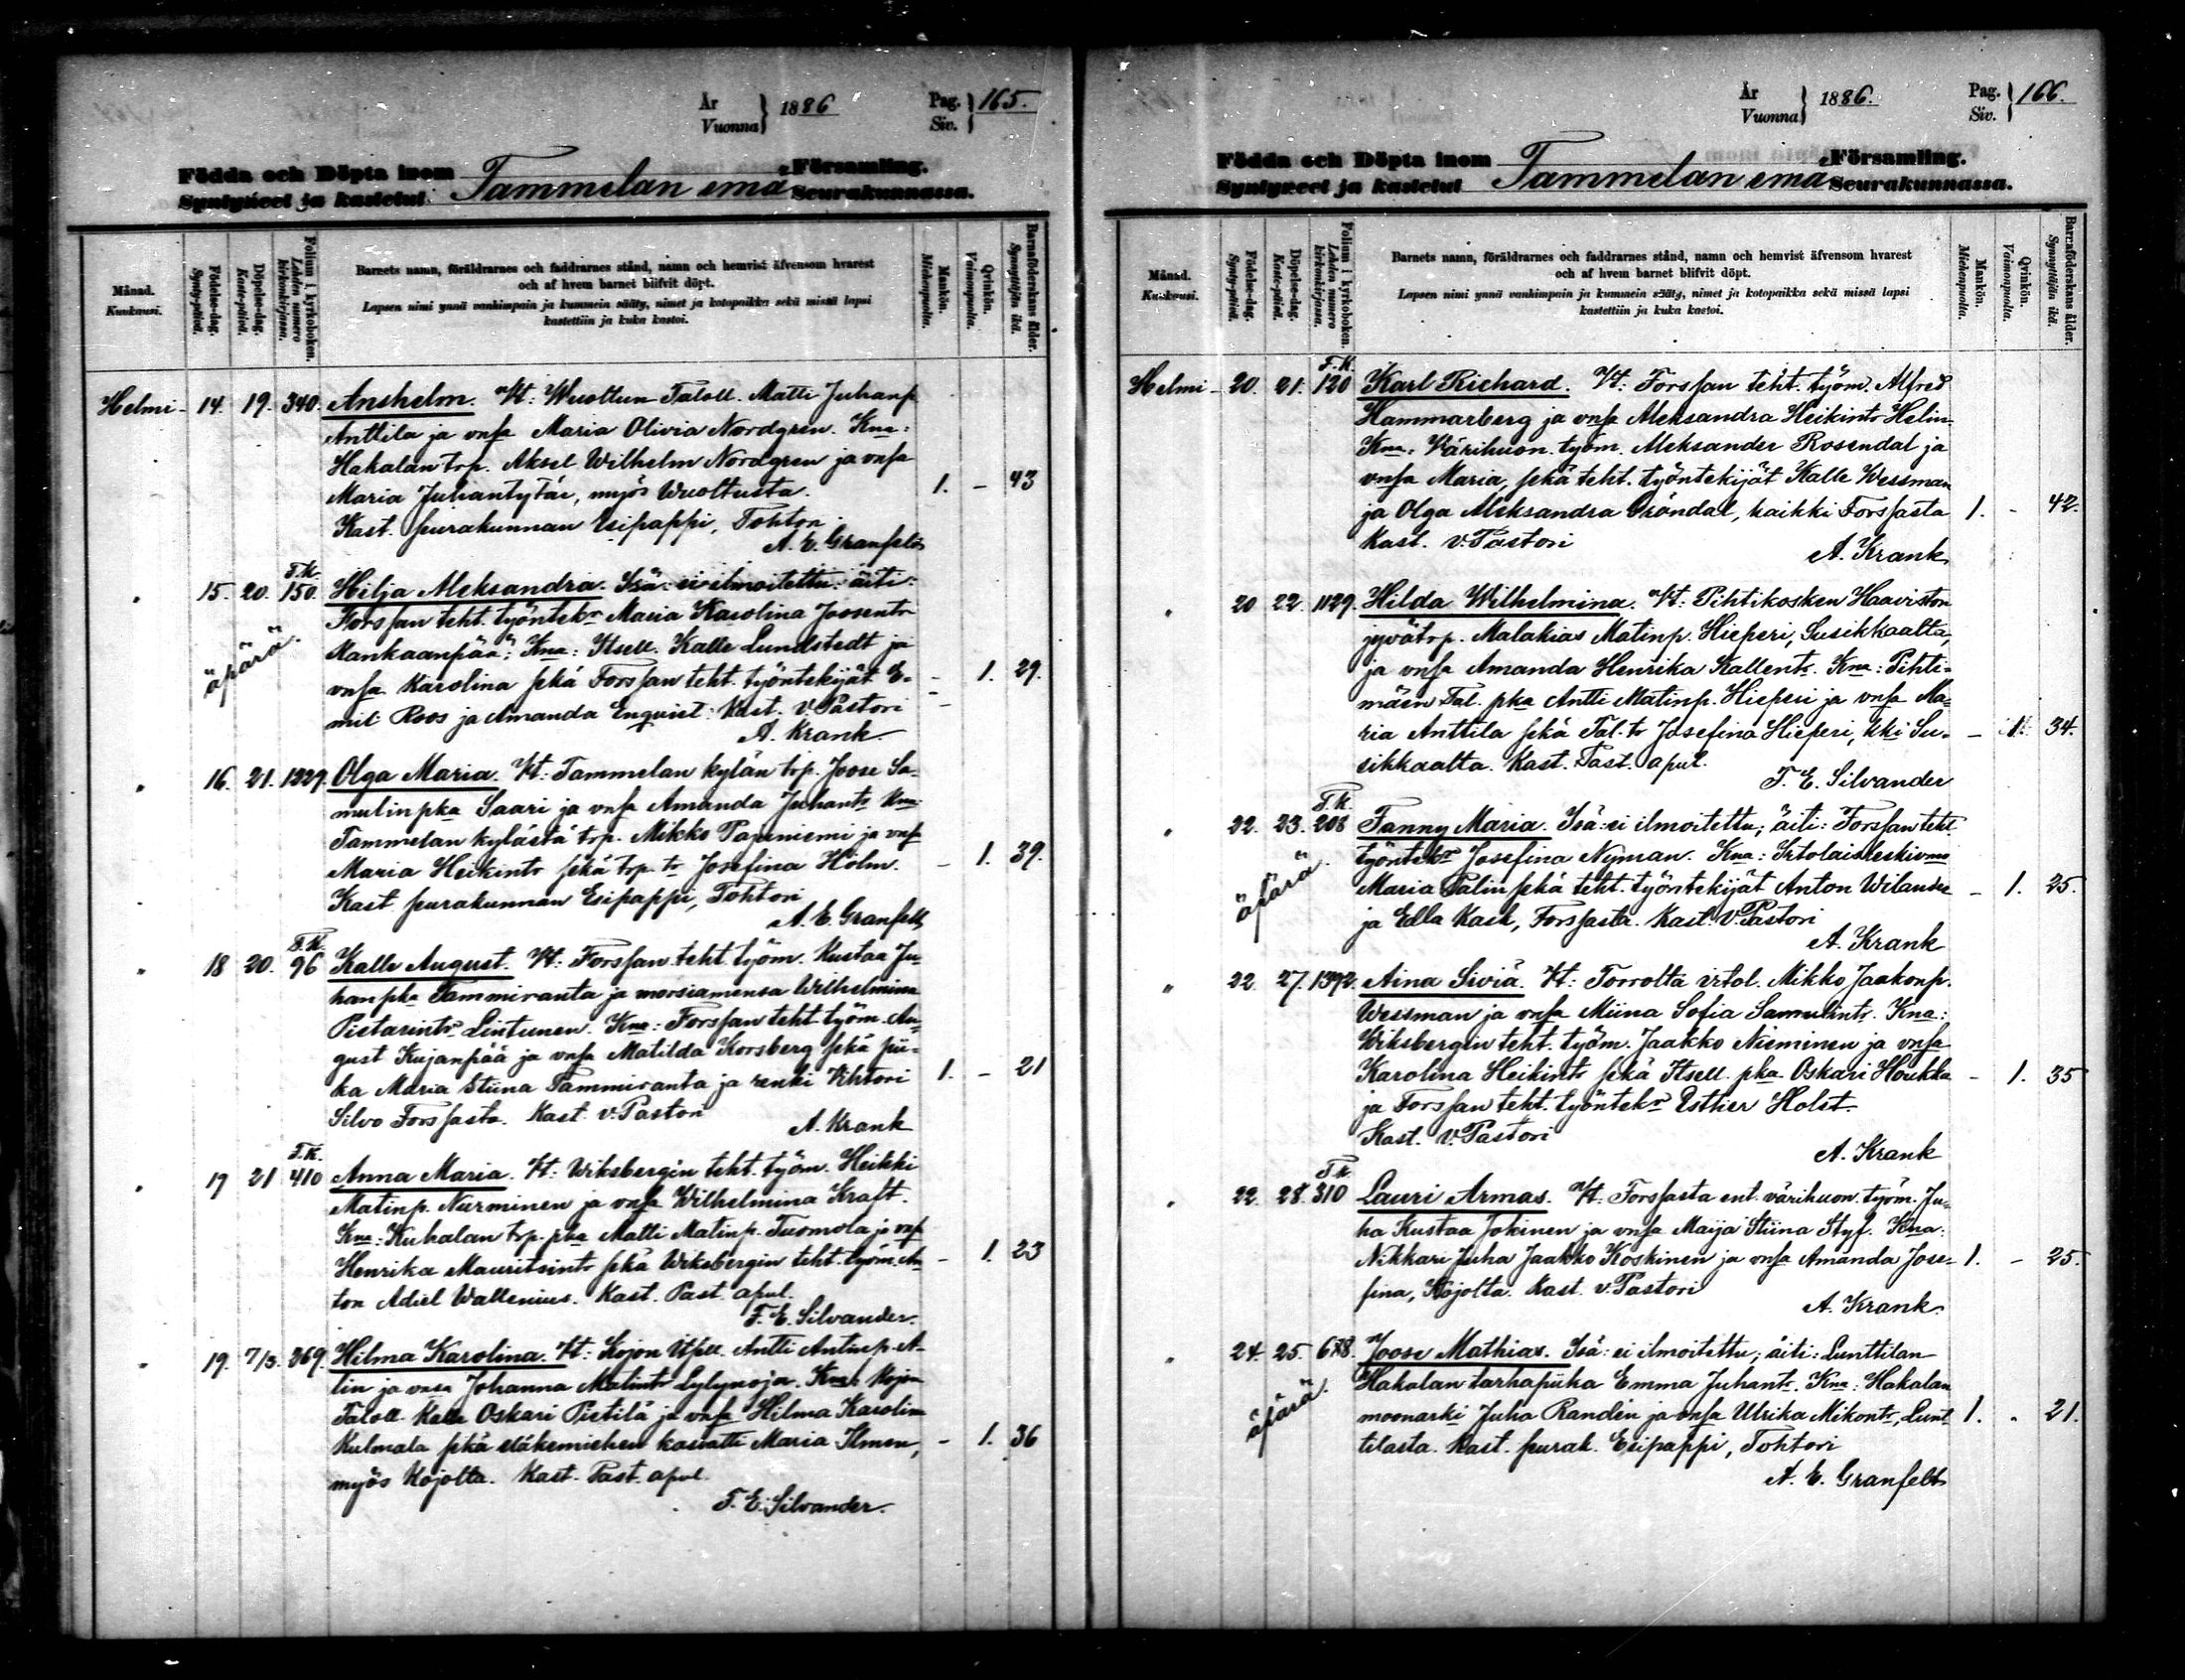 År
Vuonna } 1886
Pag.
Siv. } 165.
Födda och Döpta inom
Syntyneet ja kastetut Tammelan emä Församling.
Seurakunnassa.
Månad.
Kuukausi.
Födelse-dag.
Synty-päivä.
Döpelse-dag.
Kaste-päivä.
Folium i kyrkoboken.
Lehden numero kirkonkirjassa.
Barnets namn, föräldrarnes och faddrarnes stånd, namn och hemvist äfvensom hvarest
och af hvem barnet blifvit döpt.
Lapsen nimi ynnä vanhimpain ja kummein sääty, nimet ja kotopaikka sekä missä lapsi
kastettiin ja kuka kastoi.
Mankön.
Miehenpuolta.
Qvinkön.
Vaimonpuolta.
Barnaföderskans ålder.
Synnyttäjän ikä.
Helmi- 14. 19. 340. Anshelm. Vt: Wuoltun Taloll. Matti Juhanp
Anttila ja vnsa Maria Olivia Nordgren. Kna:
Hakalan trp. Aksel Wilhelm Nordgren ja vnsa
Maria Juhantytär, myös Wuoltusta. 1. - 43
Kast. seurakunnan Esipappi, Tohtori
A. E. Granfelt
T.K.
" 15. 20. 150. Hilja Aleksandra. Isä: ei ilmoitettu: äiti:
Forssan teht. työntekr Maria Karolina Joosentr
äpärä. Mankaanpää: Kna: Itsell. Kalle Lundstedt ja
vnsa Karolina sekä Forssan teht. työntekijät E- - 1. 29.
mil Roos ja Amanda Enqvist. Kast. v. Pastori
A. Krank.
" 16. 21. 1229. Olga Maria. Vt: Tammelan kylän trp. Joose Sa-
mulin pka Saari ja vnsa Amanda Juhantr Kna:
Tammelan kylästä trp. Mikko Papiniemi ja vnsa
Maria Heikintr sekä trp. tr Josefina Holm. - 1. 39.
Kast seurakunnan Esipappi, Tohtori
A. E. Granfelt
T.K.
" 18 20. 96 Kalle August. Vt: Forssan teht työm. Kustaa Ju-
han pka Tammiranta ja morsiamensa Wilhelmina
Pietarintr Lintunen. Kna: Forssan teht työm. Au-
gust Kujanpää ja vnsa Matilda Korsberg sekä pii-
ka Maria Stiina Tammiranta ja renki Wihtori 1. - 21
Silvo Forssasta. Kast. v. Pastori
A. Krank
T.K.
" 19 21 410 Anna Maria. Vt: Wiksbergin teht. työm. Heikki
Matinp. Nurminen ja vnsa Wilhelmina Kraft.
Kna: Kuhalan trp. pka Matti Matinp. Tuomola ja vnsa
Henrika Mauritsintr sekä Wiksbergin teht. työm. An- - 1. 23
ton Adiel Wallenius. Kast. Past. apul.
F. E. Silvander.
" 19. 7/3. 369. Hilma Karolina. Vt: Kojon Itsell. Antti Antinp. A-
lin ja vnsa Johanna Matintr Lylynoja. Kna: Kojon
Taloll. Kalle Oskari Pietilä ja vnsa Hilma Karolina
Kulmala sekä eläkemiehen kasvatti Maria Ilmen, - 1. 36
myös Kojolta. Kast. Past. apul.
F. E. Silvander.
År
Vuonna } 1886.
Pag.
Siv. } 166.
Födda och Döpta inom
Syntyneet ja kastetut Tammelan emä Församling.
Seurakunnassa.
Månad.
Kuukausi.
Födelse-dag.
Synty-päivä.
Döpelse-dag.
Kaste-päivä.
Folium i kyrkoboken.
Lehden numero kirkonkirjassa.
Barnets namn, föräldrarnes och faddrarnes stånd, namn och hemvist äfvensom hvarest
och af hvem barnet blifvit döpt.
Lapsen nimi ynnä vanhimpain ja kummein sääty, nimet ja kotopaikka sekä missä lapsi
kastettiin ja kuka kastoi.
Mankön.
Miehenpuolta.
Qvinkön.
Vaimonpuolta.
Barnaföderskans ålder.
Synnyttäjän ikä.
T.K.
Helmi- 20. 21. 120 Karl Richard. Vt: Forssan teht. työm. Alfred
Hammarberg ja vnsa Aleksandra Heikintr Helin.
Kna: Värihuon. työm. Aleksander Rosendal ja
vnsa Maria, sekä teht. työntekijät Kalle Wessman
ja Olga Aleksandra Gröndal, kaikki Forssasta 1. - 42.
Kast. v. Pastori
A. Krank
" 20 22. 1129. Hilda Wilhelmina. Vt: Pihtikosken Haaviston
jyvätrp. Malakias Matinp. Hieperi, Susikkaalta,
ja vnsa Amanda Henrika Kallentr. Kna: Pihti-
mäen Tal. pka Antti Matinp. Hieperi ja vnsa Ma-
ria Anttila sekä Tal. tr Josefina Hieperi, kki Su- - 1. 34.
sikkaalta. Kast. Past. apul.
F. E. Silvander
T.K.
" 22. 23. 208 Fanny Maria. Isä: ei ilmoitettu; äiti: Forssan teht.
työntekr Josefina Nyman. Kna: Irtolaisleskivmo
äpärä. Maria Palin sekä teht. työntekijät Anton Wilander - 1. 25.
ja Edla Kask, Forssasta. Kast. v. Pastori
A. Krank
" 22. 27. 1392. Aina Siviä. Vt: Torrolta irtol. Mikko Jaakonp.
Wessman ja vnsa Miina Sofia Samulintr. Kna:
Wiksbergin teht. työm. Jaakko Nieminen ja vnsa
Karolina Heikintr sekä Itsell. pka Oskari Houkka - 1. 35
ja Forssan teht. työntekr Esther Holst.
Kast. v. Pastori
A. Krank
T.K.
" 22. 28. 310 Lauri Armas. Vt: Forssasta ent. värihuon. työm. Ju-
ha Kustaa Jokinen ja vnsa Maija Stiina Styf. Kna:
Nikkari Juha Jaakko Koskinen ja vnsa Amanda Jose- 1. - 25.
fina, Kojolta. Kast. v. Pastori
A. Krank.
" 24. 25. 678. Joose Mathias. Isä: ei ilmoitettu; äiti: Lunttilan
äpärä. Hakalan tarhapiika Emma Juhantr. Kna: Hakalan
moonarki Juha Randén ja vnsa Ulrika Mikontr, Lunt 1. " 21.
tilasta. Kast. seurak. Esipappi, Tohtori
A. E. Granfelt